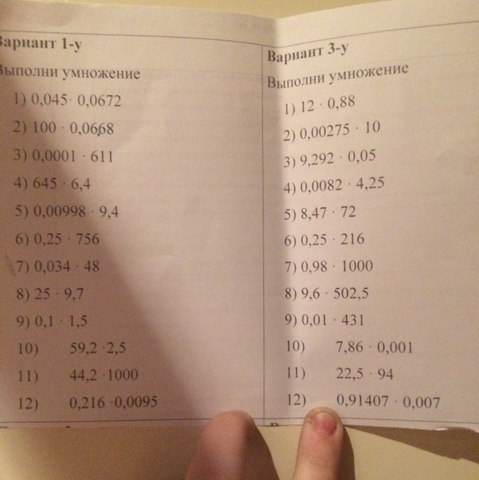 Вариант 1-у
Выполни умножение
1) 0,045· 0,0672
2) 100 · 0,0668
3) 0,0001 · 611
4) 645 · 6,4
5) 0,00998 · 9,4
6) 0,25 · 756
7) 0,034 · 48
8) 25 · 9,7
9) 0,1 · 1,5
10) 59,2 ·2,5
11) 44,2 ·1000
12) 0,216 ·0,0095
Вариант 3-у
Выполни умножение
1) 12 · 0,88
2) 0,00275 · 10
3) 9,292 · 0,05
4) 0,0082 · 4,25
5) 8,47 · 72
6) 0,25 · 216
7) 0,98 · 1000
8) 9,6 · 502,5
9) 0,01 · 431
10) 7,86 · 0,001
11) 22,5 · 94
12) 0,91407 · 0,007